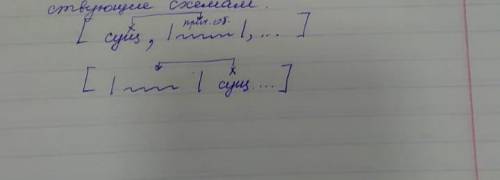 ствующие схемам.
прич. об.
[ сущ, |~~~~|, ... ]
[ |~~~~| сущ ... ]